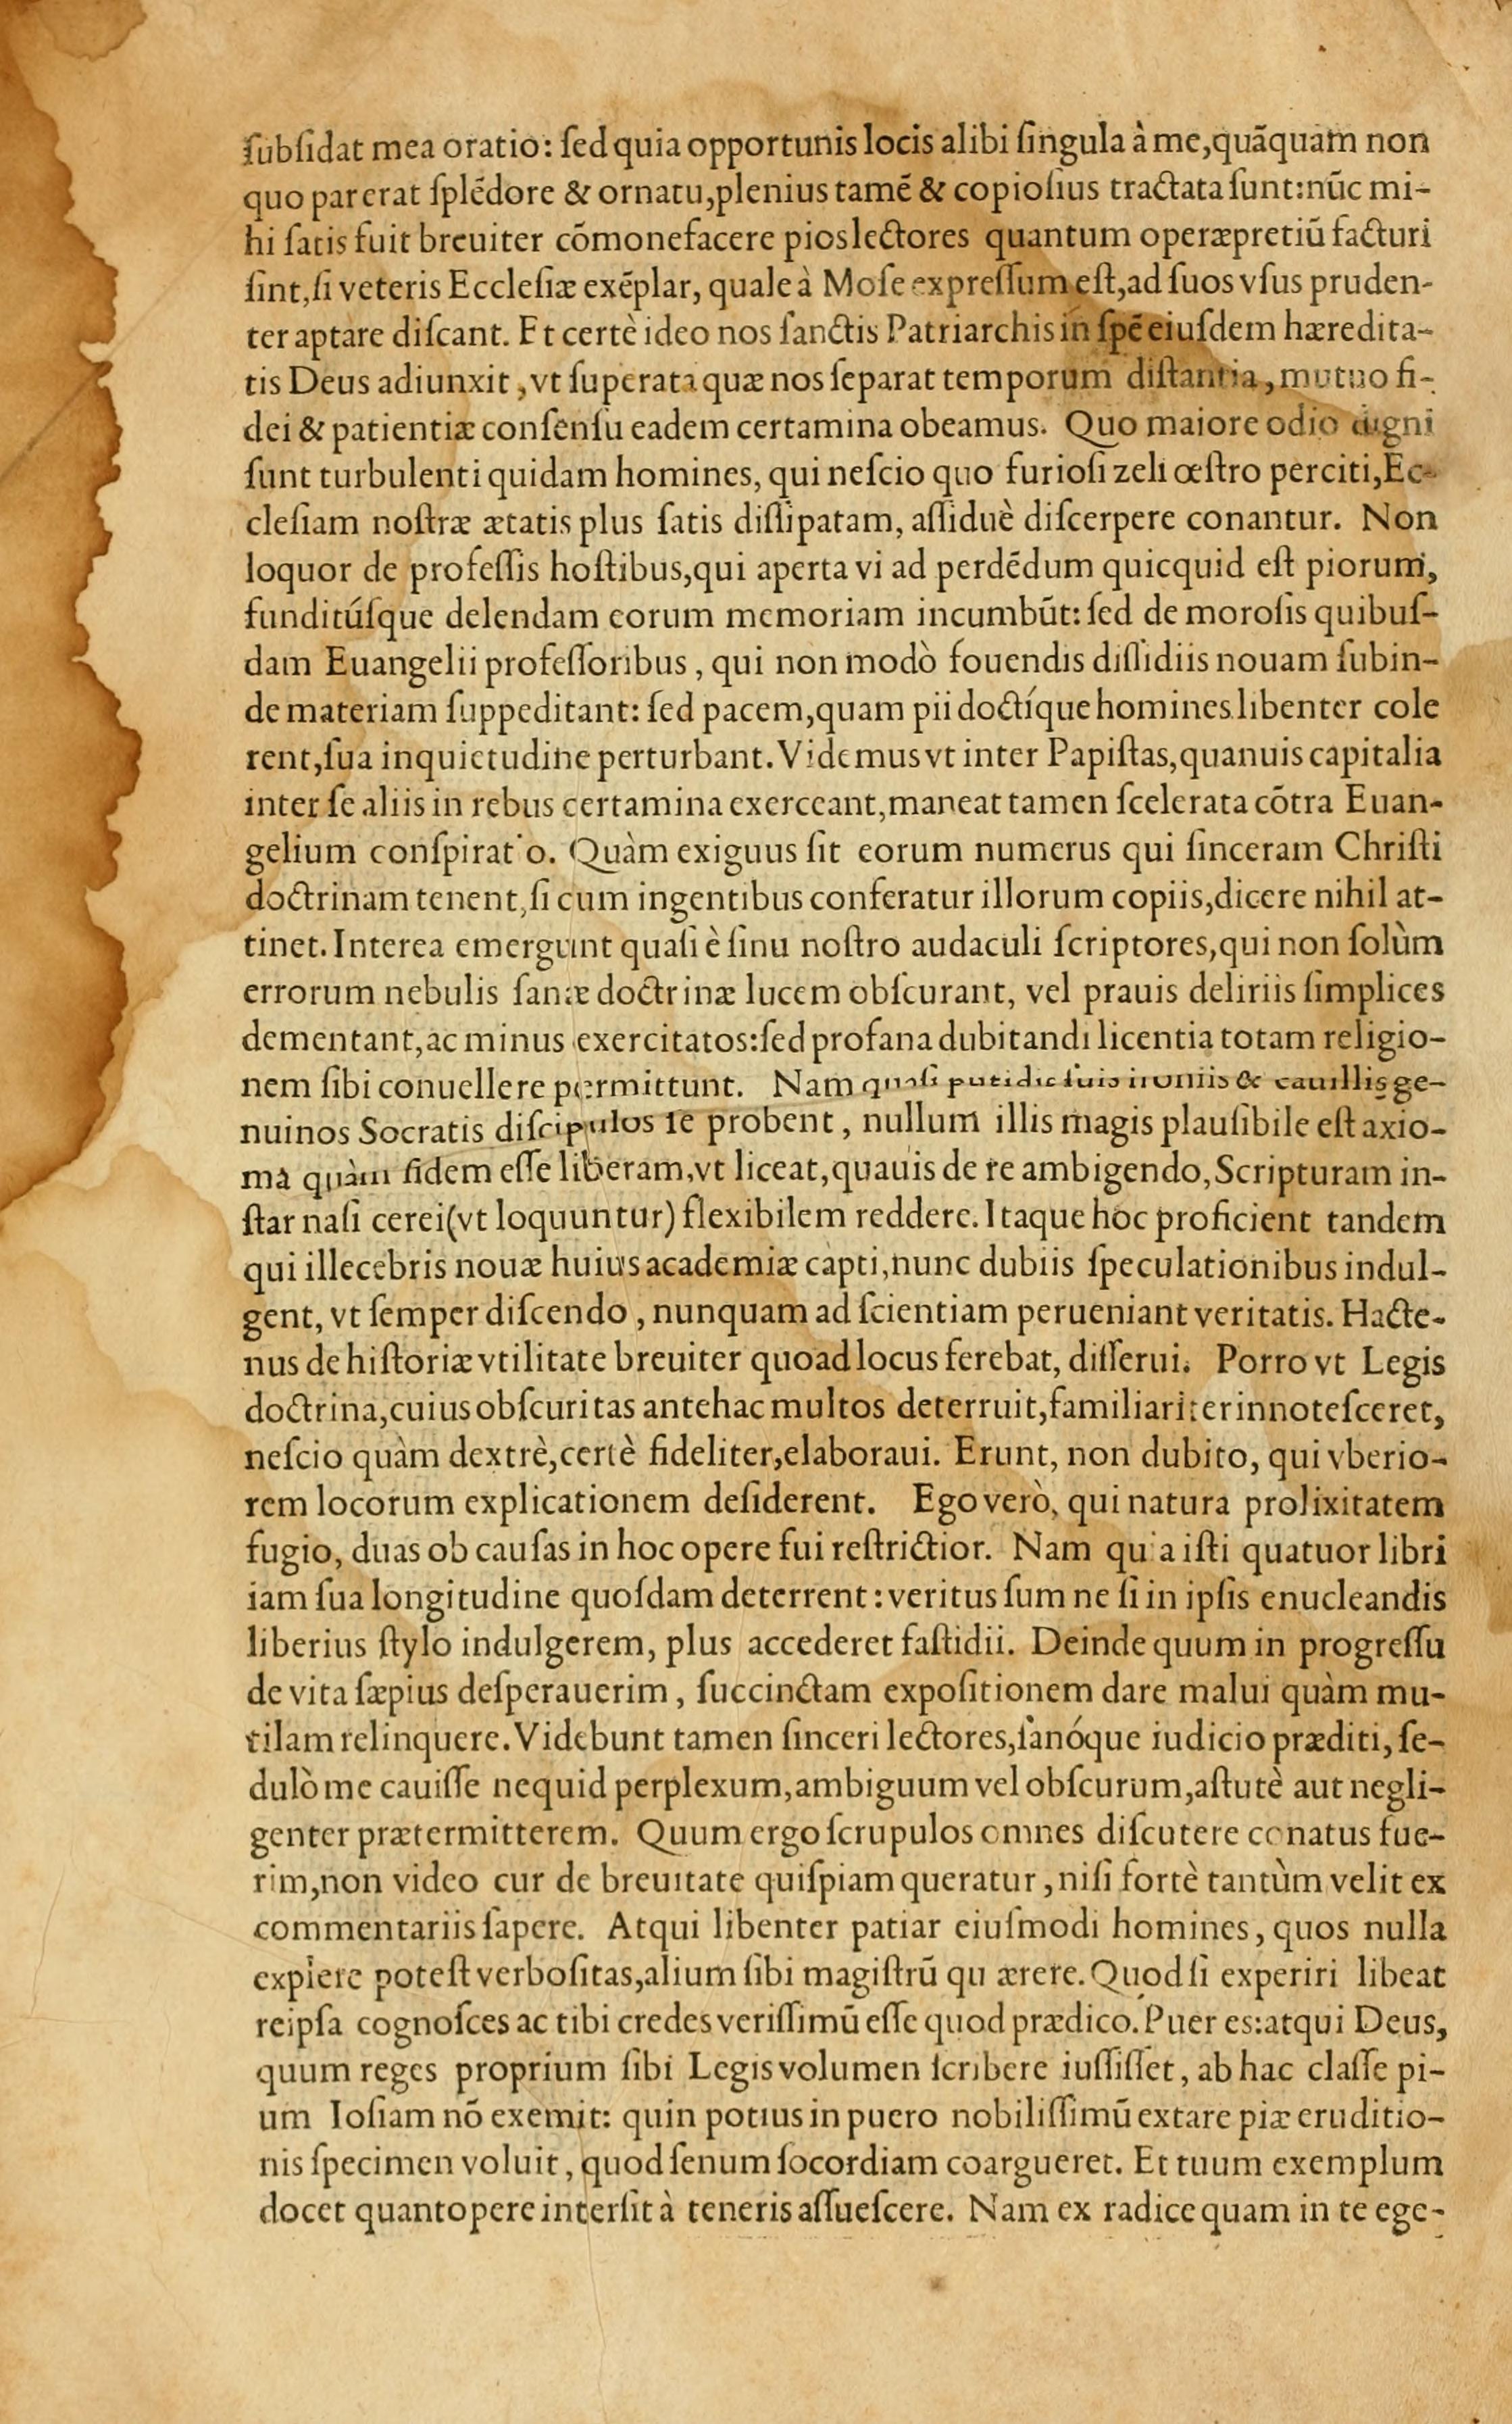 ſubſidat mea oratio: ſed quia opportunis locis alibi ſingula à me, quāquam non
quo par erat ſplēdore & ornatu, plenius tamē & copioſius tractata ſunt: nūc mi-
hi ſatis fuit breuiter cōmonefacere pios lectores quantum operæpretiū facturi
ſint, ſi veteris Eccleſiæ exēplar, quale à Moſe expreſſum eſt, ad ſuos vſus pruden-
ter aptare diſcant. Et certè ideo nos ſanctis Patriarchis in ſpē eiuſdem hæredita-
tis Deus adiunxit, vt ſuperata quæ nos ſeparat temporum diſtantia, mutuo fi-
dei & patientiæ conſenſu eadem certamina obeamus. Quo maiore odio digni
ſunt turbulenti quidam homines, qui neſcio quo furioſi zeli œſtro perciti, Ec-
cleſiam noſtræ ætatis plus ſatis diſſipatam, aſſiduè diſcerpere conantur. Non
loquor de profeſſis hoſtibus, qui aperta vi ad perdēdum quicquid eſt piorum,
funditúſque delendam eorum memoriam incumbūt: ſed de moroſis quibuſ-
dam Euangelii profeſſoribus, qui non modò fouendis diſſidiis nouam ſubin-
de materiam ſuppeditant: ſed pacem, quam pii doctíque homines libenter cole
rent, ſua inquietudine perturbant. Videmus vt inter Papiſtas, quanuis capitalia
inter ſe aliis in rebus certamina exerceant, maneat tamen ſcelerata cōtra Euan-
gelium conſpiratio. Quàm exiguus ſit eorum numerus qui ſinceram Chriſti
doctrinam tenent, ſi cum ingentibus conferatur illorum copiis, dicere nihil at-
tinet. Interea emergunt quaſi è ſinu noſtro audaculi ſcriptores, qui non ſolùm
errorum nebulis ſanæ doctrinæ lucem obſcurant, vel prauis deliriis ſimplices
dementant, ac minus exercitatos: ſed profana dubitandi licentia totam religio-
nem ſibi conuellere permittunt. Nam quaſi putidis ſuis ironiis & cauillis ge-
nuinos Socratis diſcipulos ſe probent, nullum illis magis plauſibile eſt axio-
ma quàm fidem eſſe liberam, vt liceat, quauis de re ambigendo, Scripturam in-
ſtar naſi cerei (vt loquuntur) flexibilem reddere. Itaque hoc proficient tandem
qui illecebris nouæ huius academiæ capti, nunc dubiis ſpeculationibus indul-
gent, vt ſemper diſcendo, nunquam ad ſcientiam perueniant veritatis. Hacte-
nus de hiſtoriæ vtilitate breuiter quoad locus ferebat, diſſerui. Porro vt Legis
doctrina, cuius obſcuritas antehac multos deterruit, familiariter innoteſceret,
neſcio quàm dextrè, certè fideliter, elaboraui. Erunt, non dubito, qui vberio-
rem locorum explicationem deſiderent. Ego verò, qui natura prolixitatem
fugio, duas ob cauſas in hoc opere fui reſtrictior. Nam quia iſti quatuor libri
iam ſua longitudine quoſdam deterrent: veritus ſum ne ſi in ipſis enucleandis
liberius ſtylo indulgerem, plus accederet faſtidii. Deinde quum in progreſſu
de vita ſæpius deſperauerim, ſuccinctam expoſitionem dare malui quàm mu-
tilam relinquere. Videbunt tamen ſinceri lectores, ſanóque iudicio præditi, ſe-
dulò me cauiſſe nequid perplexum, ambiguum vel obſcurum, aſtutè aut negli-
genter prætermitterem. Quum ergo ſcrupulos omnes diſcutere conatus fue-
rim, non video cur de breuitate quiſpiam queratur, niſi fortè tantùm velit ex
commentariis ſapere. Atqui libenter patiar eiuſmodi homines, quos nulla
explere poteſt verboſitas, alium ſibi magiſtrū quærere. Quod ſi experiri libeat
reipſa cognoſces ac tibi credes veriſſimū eſſe quod prædico. Puer es: atqui Deus,
quum reges proprium ſibi Legis volumen ſcribere iuſſiſſet, ab hac claſſe pi-
um Ioſiam nō exemit: quin potius in puero nobiliſſimū extare piæ eruditio-
nis ſpecimen voluit, quod ſenum ſocordiam coargueret. Et tuum exemplum
docet quantopere interſit à teneris aſſueſcere. Nam ex radice quam in te ege-